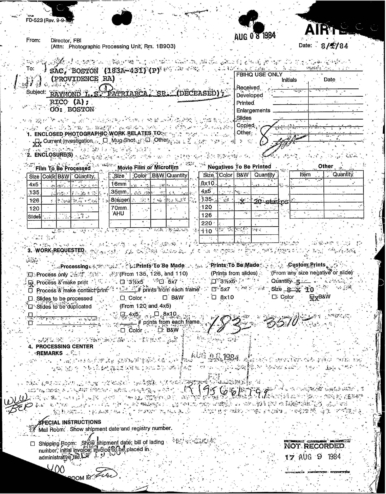 FD-523 (Rev.
AUG 08 1984
AIRTEL
From: Director, FBI
(Attn: Photographic Processing Unit, Rm. 1B903)
Date: 8/2/84
To: SAC, BOSTON (183A-431) (P)
(PROVIDENCE RA)
Subject: RAYMOND L.S. PATRIARCA, SR. (DECEASED);
RICO (A);
OO: BOSTON
FBIHQ USE ONLY
Initials Date
Received
Developed
Printed
Enlargements
Slides
Copies
Other
1. ENCLOSED PHOTOGRAPHIC WORK RELATES TO:
XX Current Investigation ☐ Mug Shot ☐ Other
2. ENCLOSURE(S)
Film To Be Processed
Size Color B&W Quantity
4x5
135
126
120
Slides
Movie Film or Microfilm
Size Color B&W Quantity
16mm
35mm
8
70mm
AHU
Negatives To Be Printed
Size Color B&W Quantity
8x10
4x5
135 X 20
120
126
220
110
Other
Item Quantity
3. WORK REQUESTED
Processing
☐ Process only
Process & make print
☐ Process & make contact print
☐ Slides to be processed
☐ Slides to be duplicated
Prints To Be Made
(From 135, 126, and 110)
☐ 3½x5 ☐ 5x7
prints from each frame
☐ Color ☐ B&W
(From 120 and 4x5)
☐ 4x5 ☐ 8x10
prints from each frame
☐ Color ☐ B&W
Prints To Be Made
(From slides)
☐ 3½x5
☐ 5x7
☐ 8x10
Custom Prints
(From any size negative or slide)
Quantity 5
Size 8 X 10
☐ Color XX B&W
183-3570
4. PROCESSING CENTER
REMARKS
AUG 1984
SPECIAL INSTRUCTIONS
Mail Room: Show shipment date and registry number.
☐ Shipping Room: Show shipment date; bill of lading
number; initial invoice; placed in
administrative
NOT RECORDED
17 AUG 9 1984